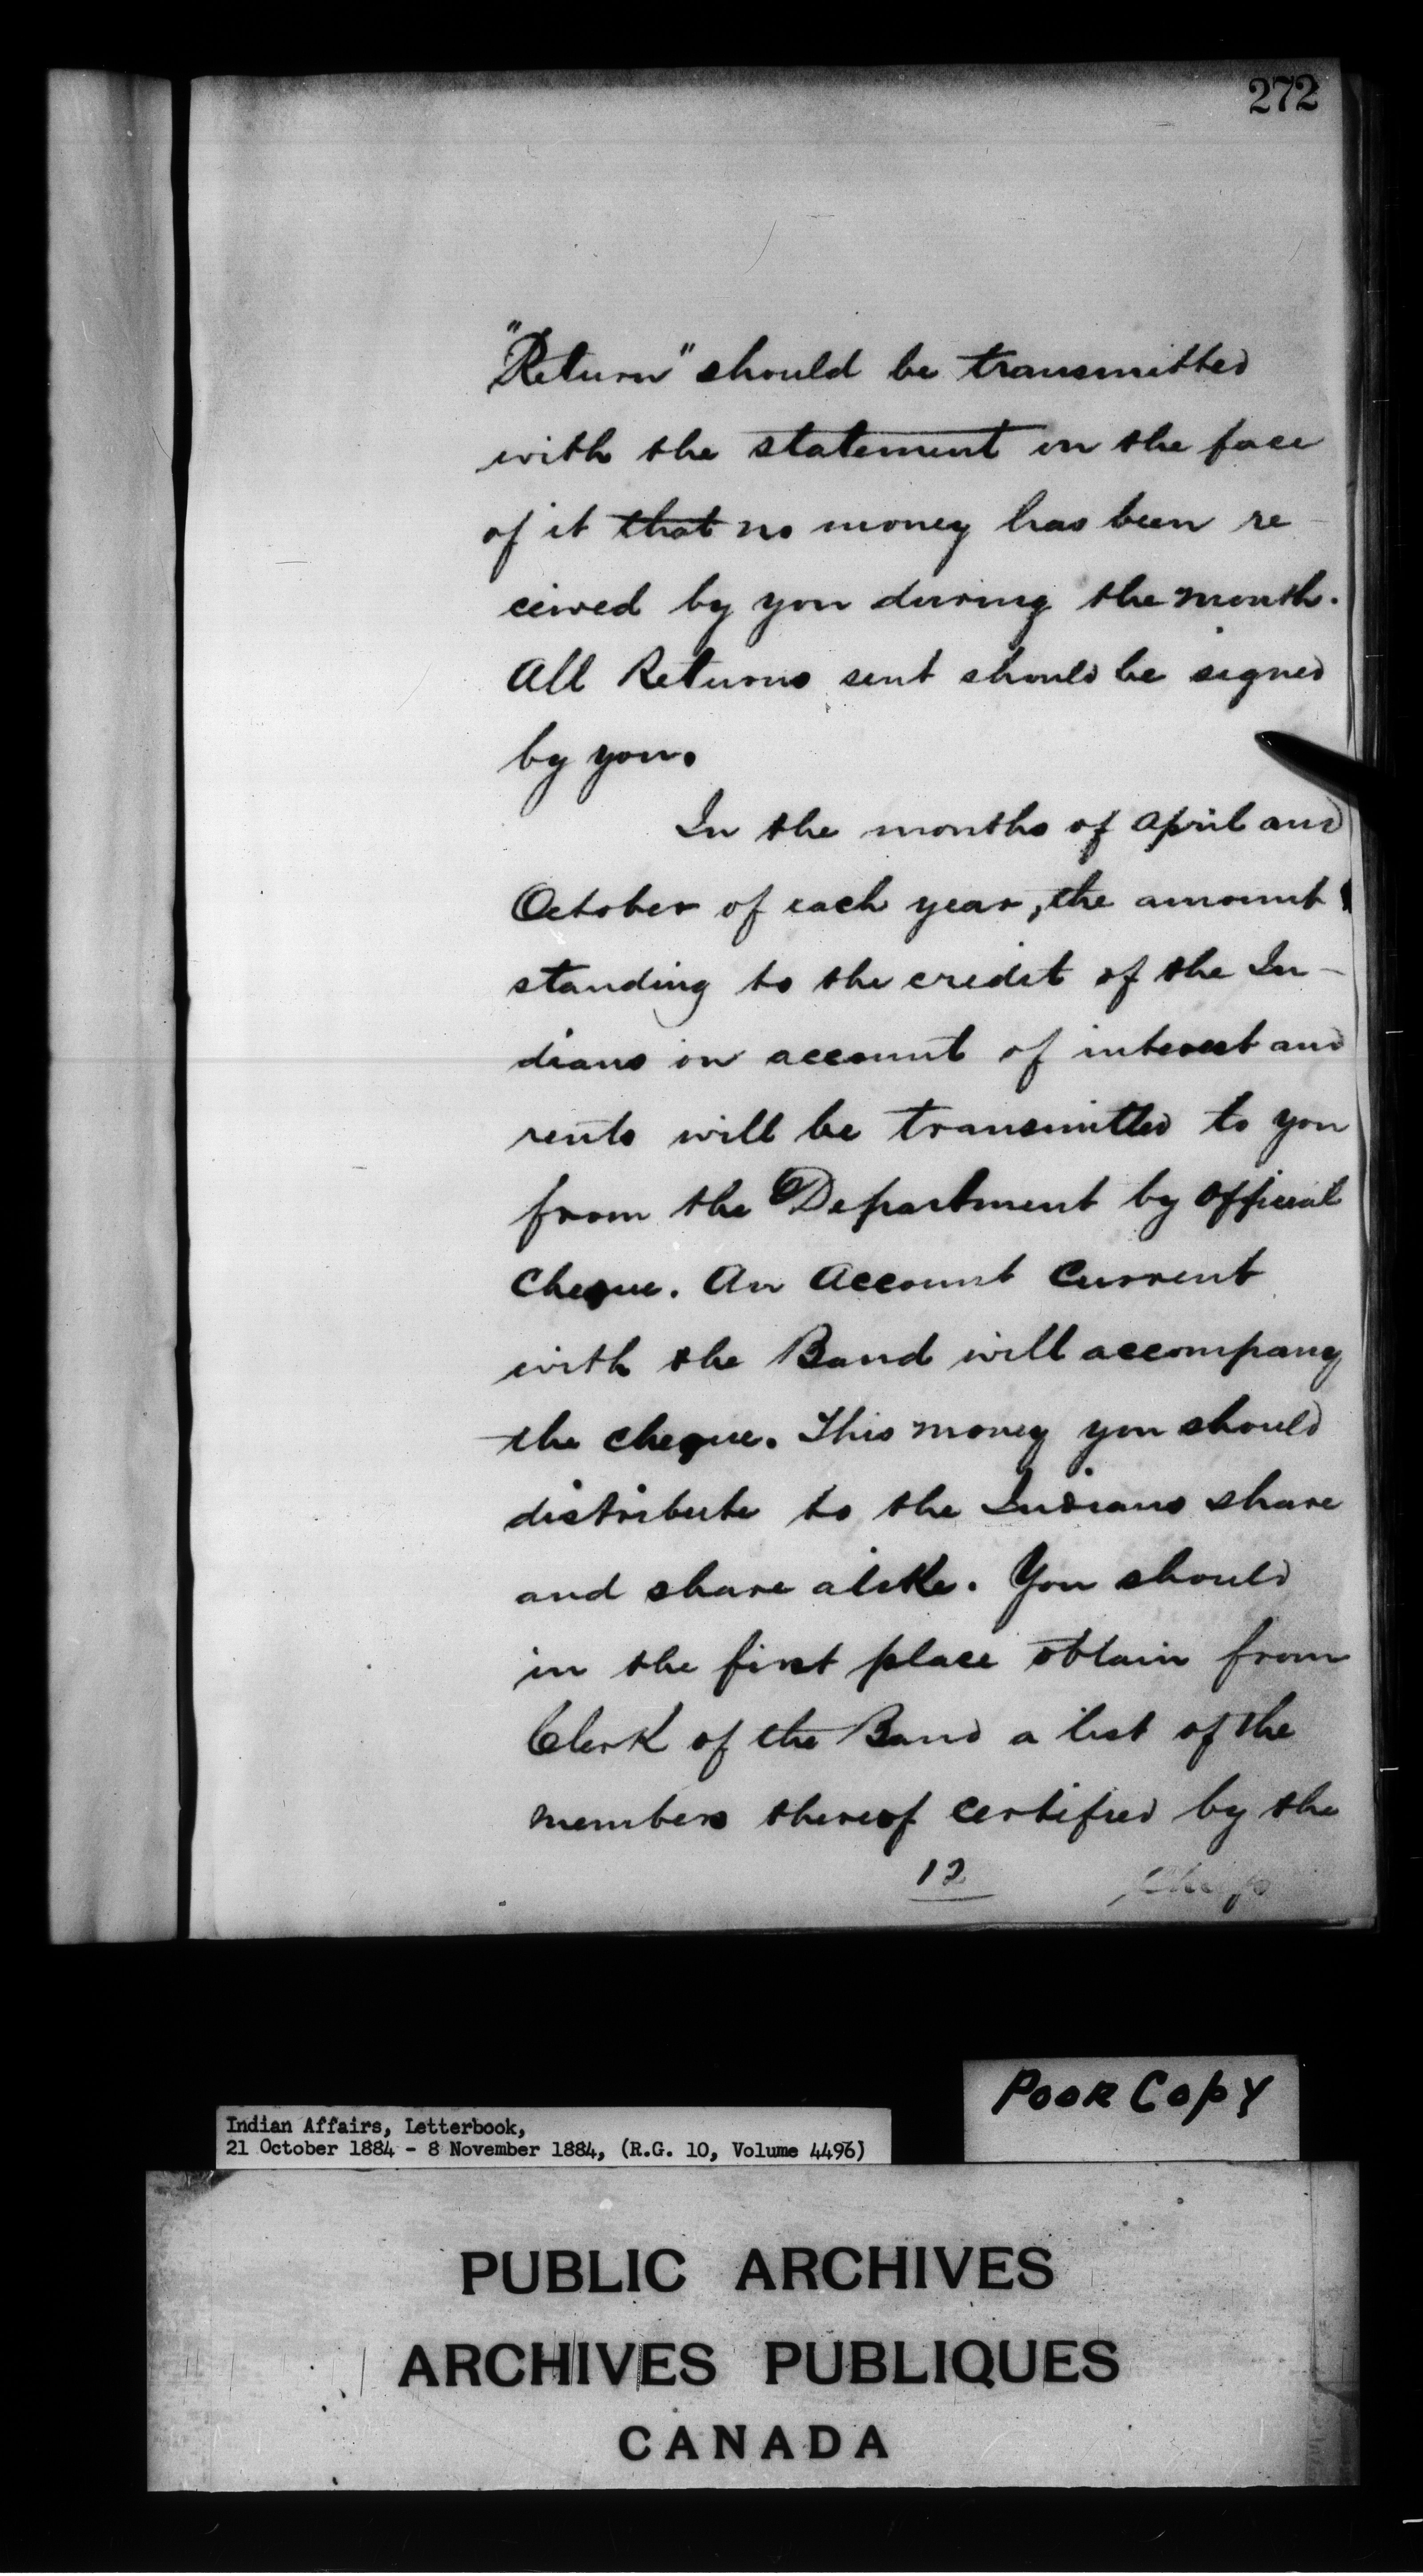 272
"Return" should be transmitted
with the statement on the face
of it that no money has been re-
ceived by you during the month.
All Returns sent should be signed
by you.
In the months of April and
October of each year, the amount
standing to the credit of the In-
dians on account of interest and
rents will be transmitted to you
from the Department by Official
Cheque. An Account Current
with the Band will accompany
the cheque. This money you should
distribute to the Indians share
and share alike. You should
in the first place obtain from
Clerk of the Band a list of the
members thereof certified by the
12
Chief
POOR COPY
Indian Affairs, Letterbook,
21 October 1884 - 8 November 1884, (R.G. 10, Volume 4496)
PUBLIC ARCHIVES
ARCHIVES PUBLIQUES
CANADA